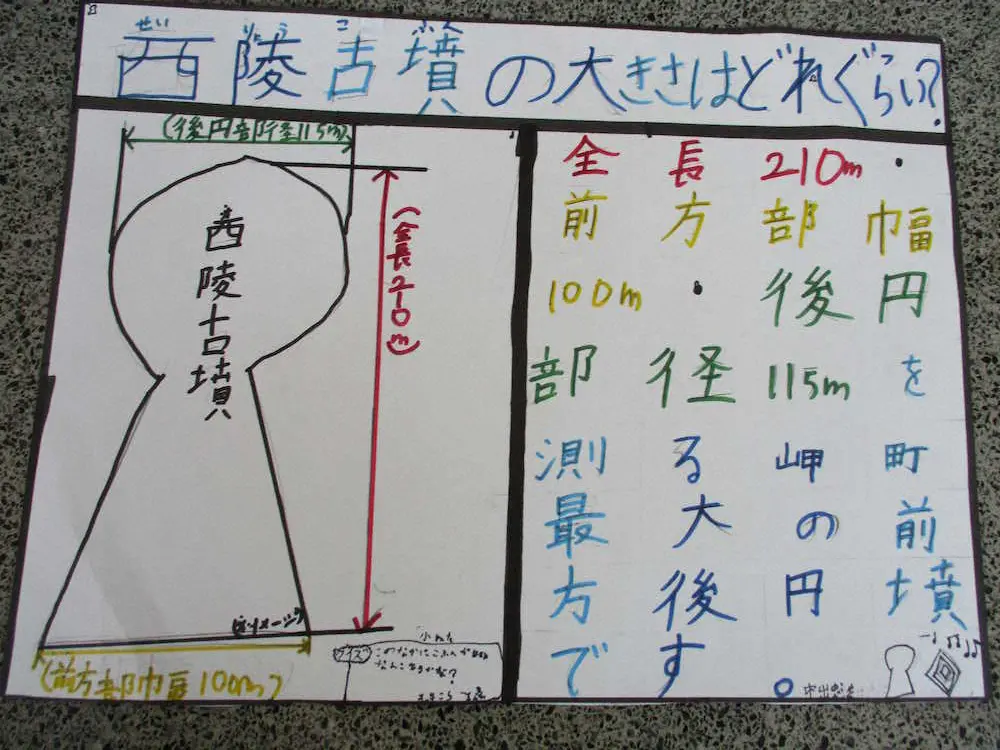 せい りょう こ ふん
西陵古墳の大きさはどれぐらい?
(後円部径115m)
西陵古墳
(全長210m)
(※イメージ)
(前方部幅100m)
クイズ
なんこあるかな?
全長210m・
前方部幅
100m・後円
部径115mを
測る岬町
最大の前
方後円墳
です。